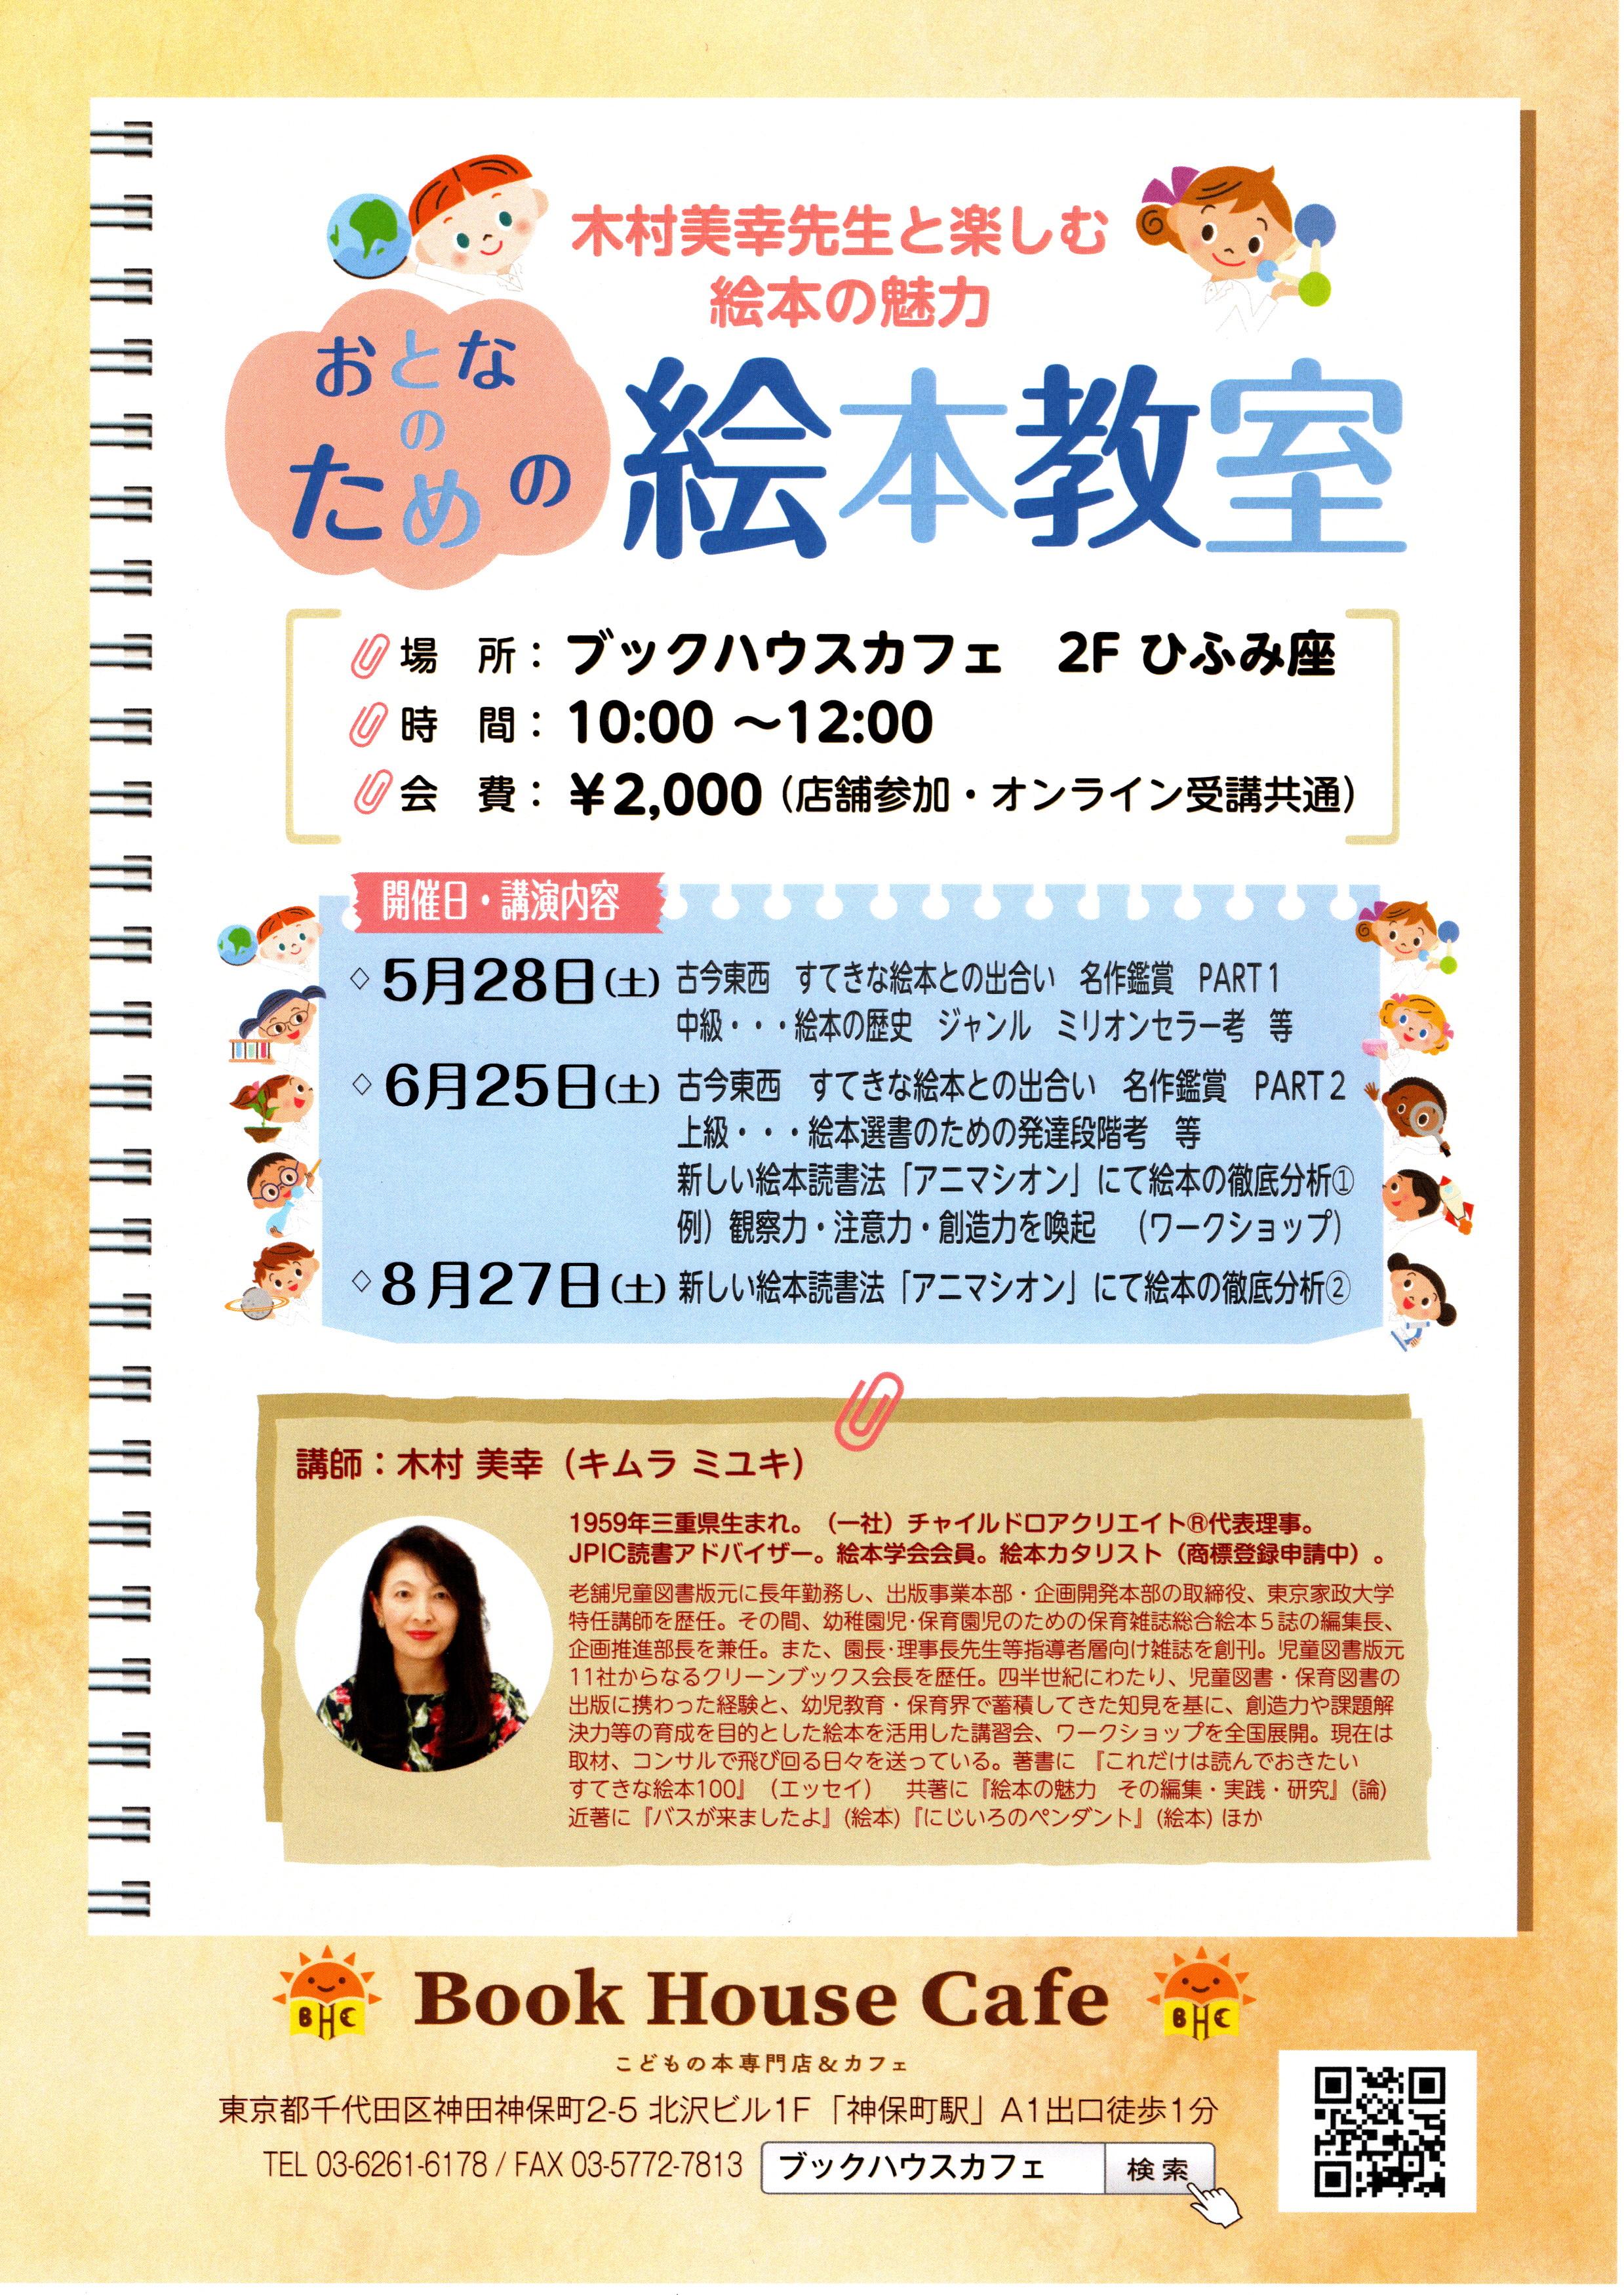 木村美幸先生と楽しむ
絵本の魅力
おとなの
ための
絵本教室
場　所：ブックハウスカフェ　2F ひふみ座
時　間：10:00 ～12:00
会　費：￥2,000（店舗参加・オンライン受講共通）
開催日・講演内容
◇ 5月28日(土) 古今東西　すてきな絵本との出合い　名作鑑賞　PART１
中級・・・絵本の歴史　ジャンル　ミリオンセラー考　等
◇ 6月25日(土) 古今東西　すてきな絵本との出合い　名作鑑賞　PART２
上級・・・絵本選書のための発達段階考　等
新しい絵本読書法「アニマシオン」にて絵本の徹底分析①
例）観察力・注意力・創造力を喚起　（ワークショップ）
◇ 8月27日(土) 新しい絵本読書法「アニマシオン」にて絵本の徹底分析②
講師：木村 美幸（キムラ ミユキ）
1959年三重県生まれ。（一社）チャイルドロアクリエイト®代表理事。
JPIC読書アドバイザー。絵本学会会員。絵本カタリスト（商標登録申請中）。
老舗児童図書版元に長年勤務し、出版事業本部・企画開発本部の取締役、東京家政大学
特任講師を歴任。その間、幼稚園児・保育園児のための保育雑誌総合絵本５誌の編集長、
企画推進部長を兼任。また、園長・理事長先生等指導者層向け雑誌を創刊。児童図書版元
11社からなるクリーンブックス会長を歴任。四半世紀にわたり、児童図書・保育図書の
出版に携わった経験と、幼児教育・保育界で蓄積してきた知見を基に、創造力や課題解
決力等の育成を目的とした絵本を活用した講習会、ワークショップを全国展開。現在は
取材、コンサルで飛び回る日々を送っている。著書に　『これだけは読んでおきたい
すてきな絵本100』（エッセイ）　共著に『絵本の魅力　その編集・実践・研究』(論)
近著に『バスが来ましたよ』(絵本)『にじいろのペンダント』(絵本) ほか
BHC Book House Cafe BHC
こどもの本専門店＆カフェ
東京都千代田区神田神保町2-5 北沢ビル1F「神保町駅」A1出口徒歩1分
TEL 03-6261-6178 / FAX 03-5772-7813 ブックハウスカフェ 検索